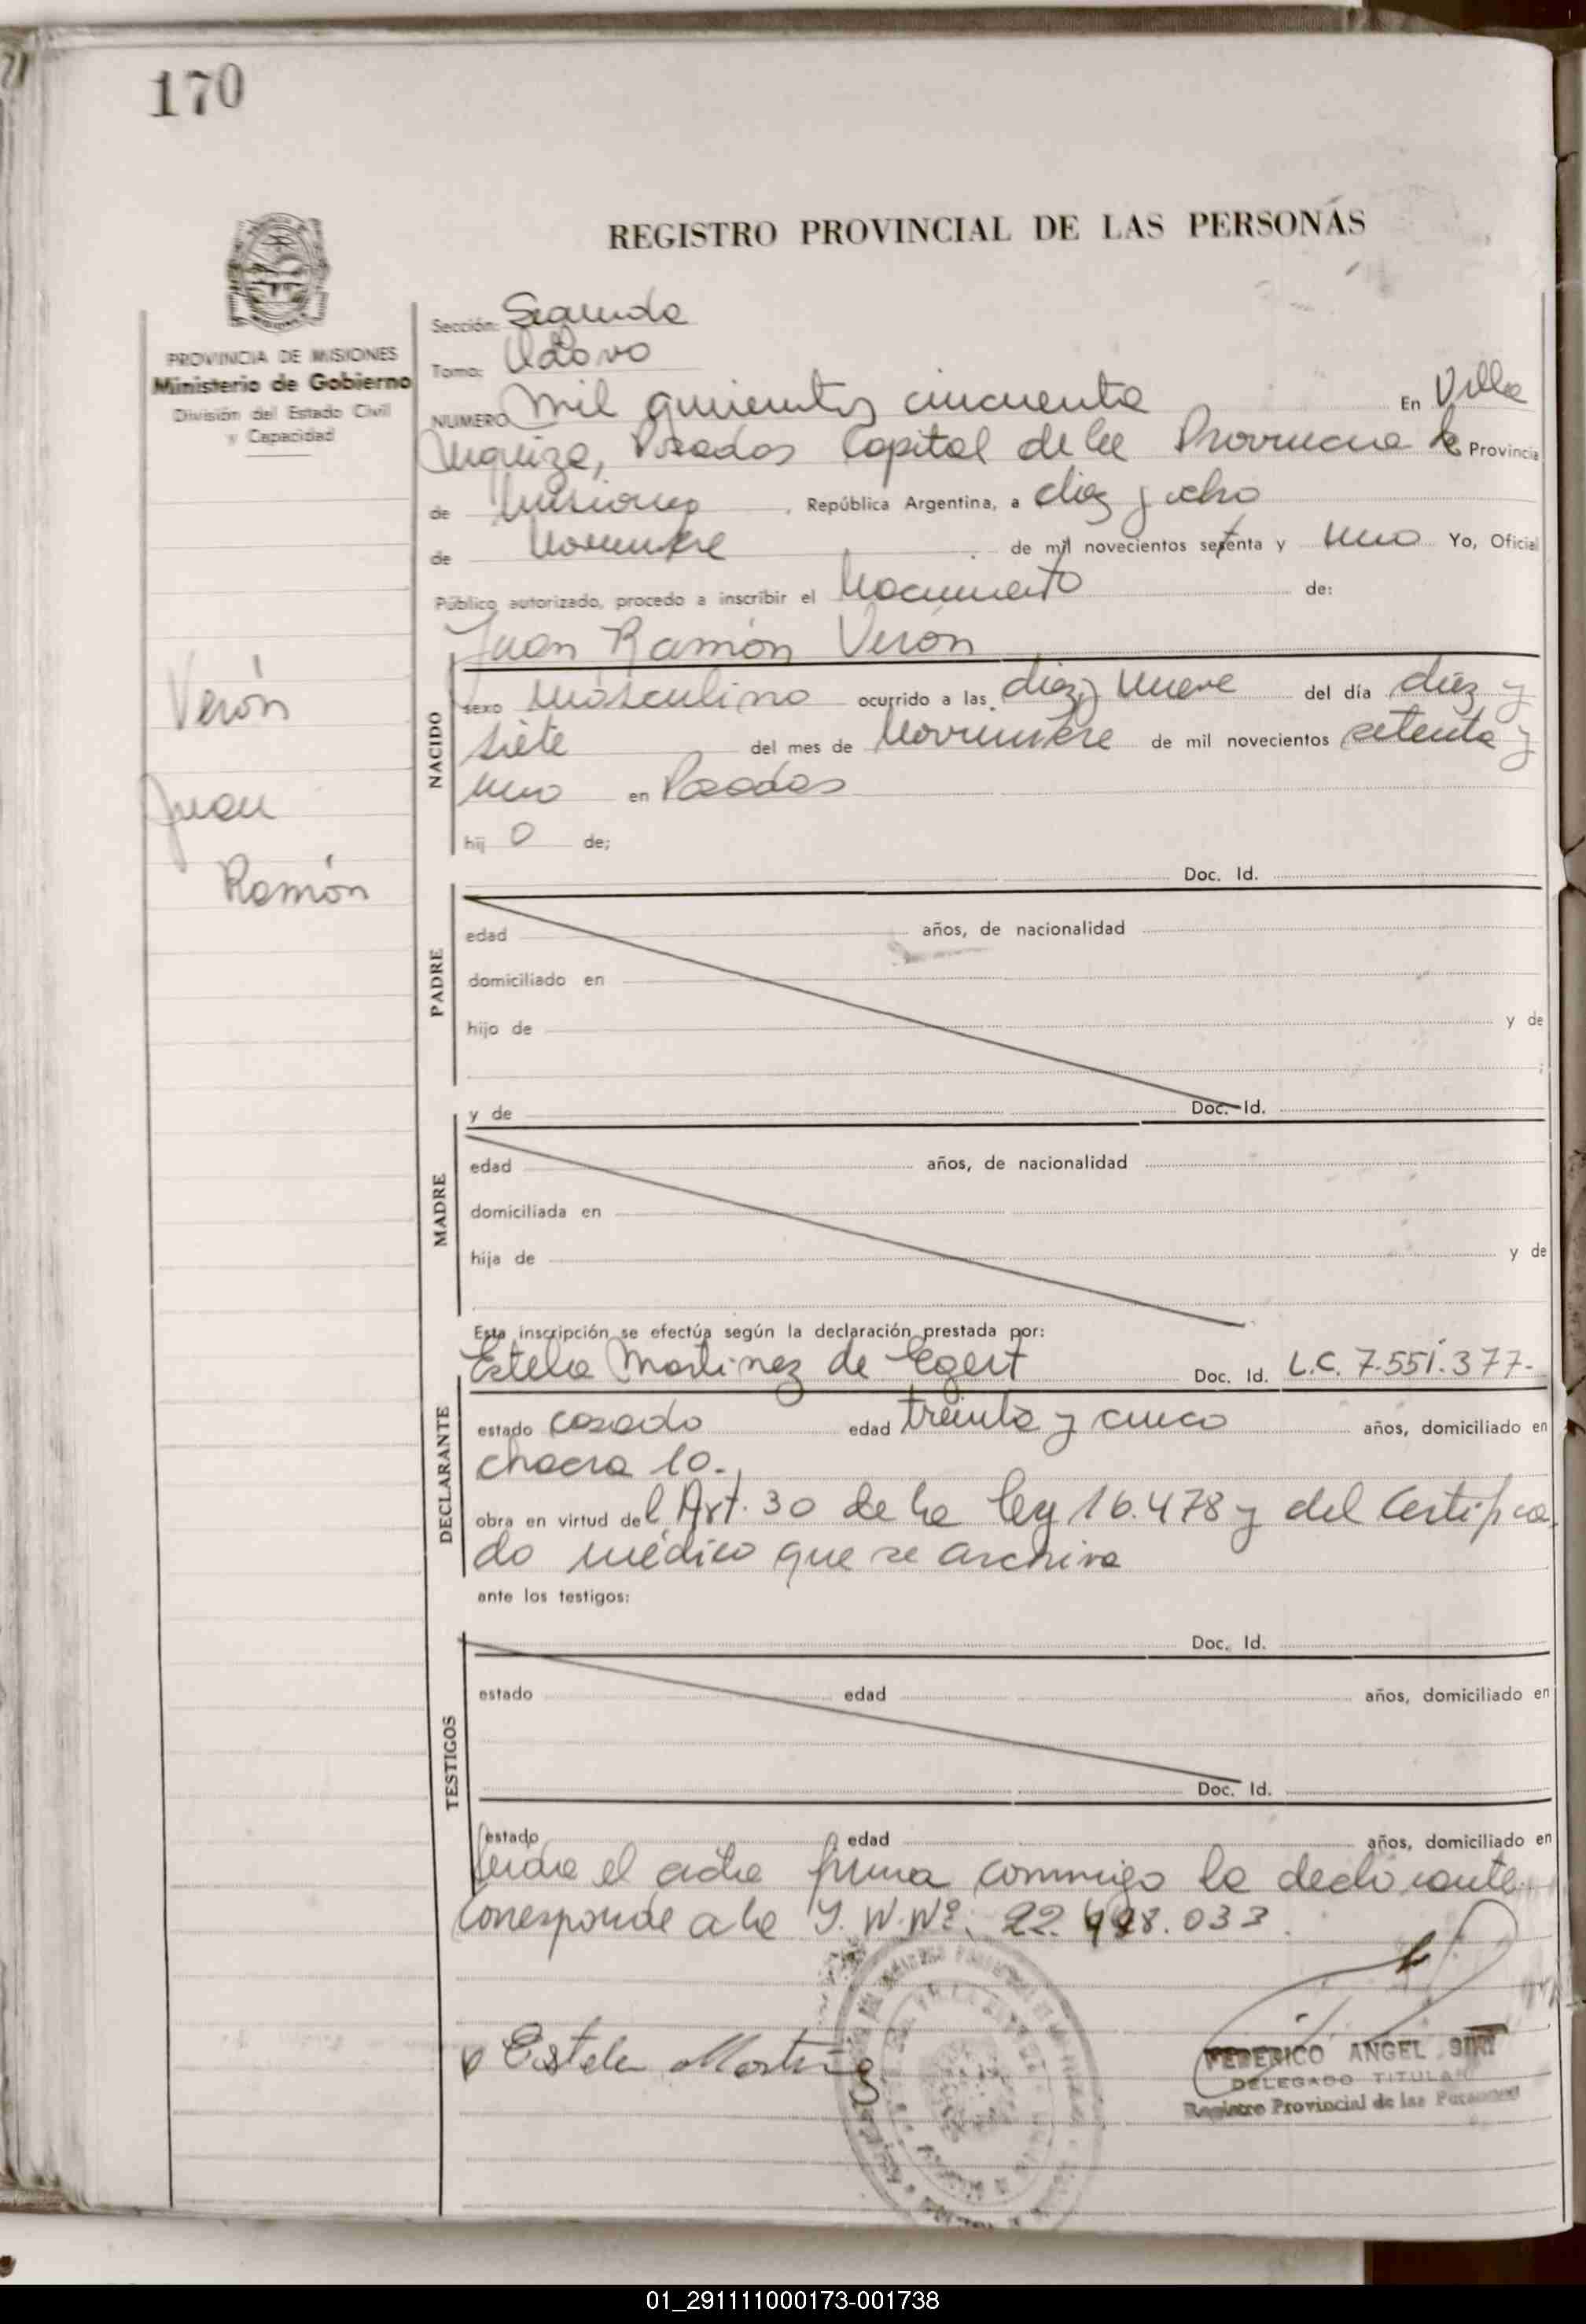 170
REGISTRO PROVINCIAL DE LAS PERSONAS
PROVINCIA DE MISIONES
Ministerio de Gobierno
División del Estado Civil
y Capacidad
Verón
Juan
Ramón
Sección: Segunda
Tomo: Octavo
NUMERO mil quinientos cincuenta En Villa
Urquiza, Posadas Capital de la Provincia de Provincia
de Misiones, República Argentina, a diez y ocho
de Noviembre de mil novecientos setenta y uno Yo, Oficial
Público autorizado, procedo a inscribir el Nacimiento de:
Juan Ramón Verón
NACIDO
sexo masculino ocurrido a las diez y nueve del día diez y
siete del mes de Noviembre de mil novecientos setenta y
uno en Posadas
hij o de;
Doc. Id.
PADRE
edad años, de nacionalidad
domiciliado en
hijo de y de
y de Doc. Id.
MADRE
edad años, de nacionalidad
domiciliada en
hija de y de
Esta inscripción se efectúa según la declaración prestada por:
Estela Martinez de Egert Doc. Id. L.C. 7.551.377-
DECLARANTE
estado casado edad treinta y cinco años, domiciliado en
chacra 10.
obra en virtud del Art. 30 de la ley 16.478 y del Certifica
do médico que se archiva
ante los testigos:
Doc. Id.
TESTIGOS
estado edad años, domiciliado en
Doc. Id.
estado edad años, domiciliado en
el acta firma conmigo la declarante.
Corresponde a la Nº 033
Estela Martinez
FEDERICO ANGEL SIRI
DELEGADO TITULAR
Registro Provincial de las Personas
01_291111000173-001738